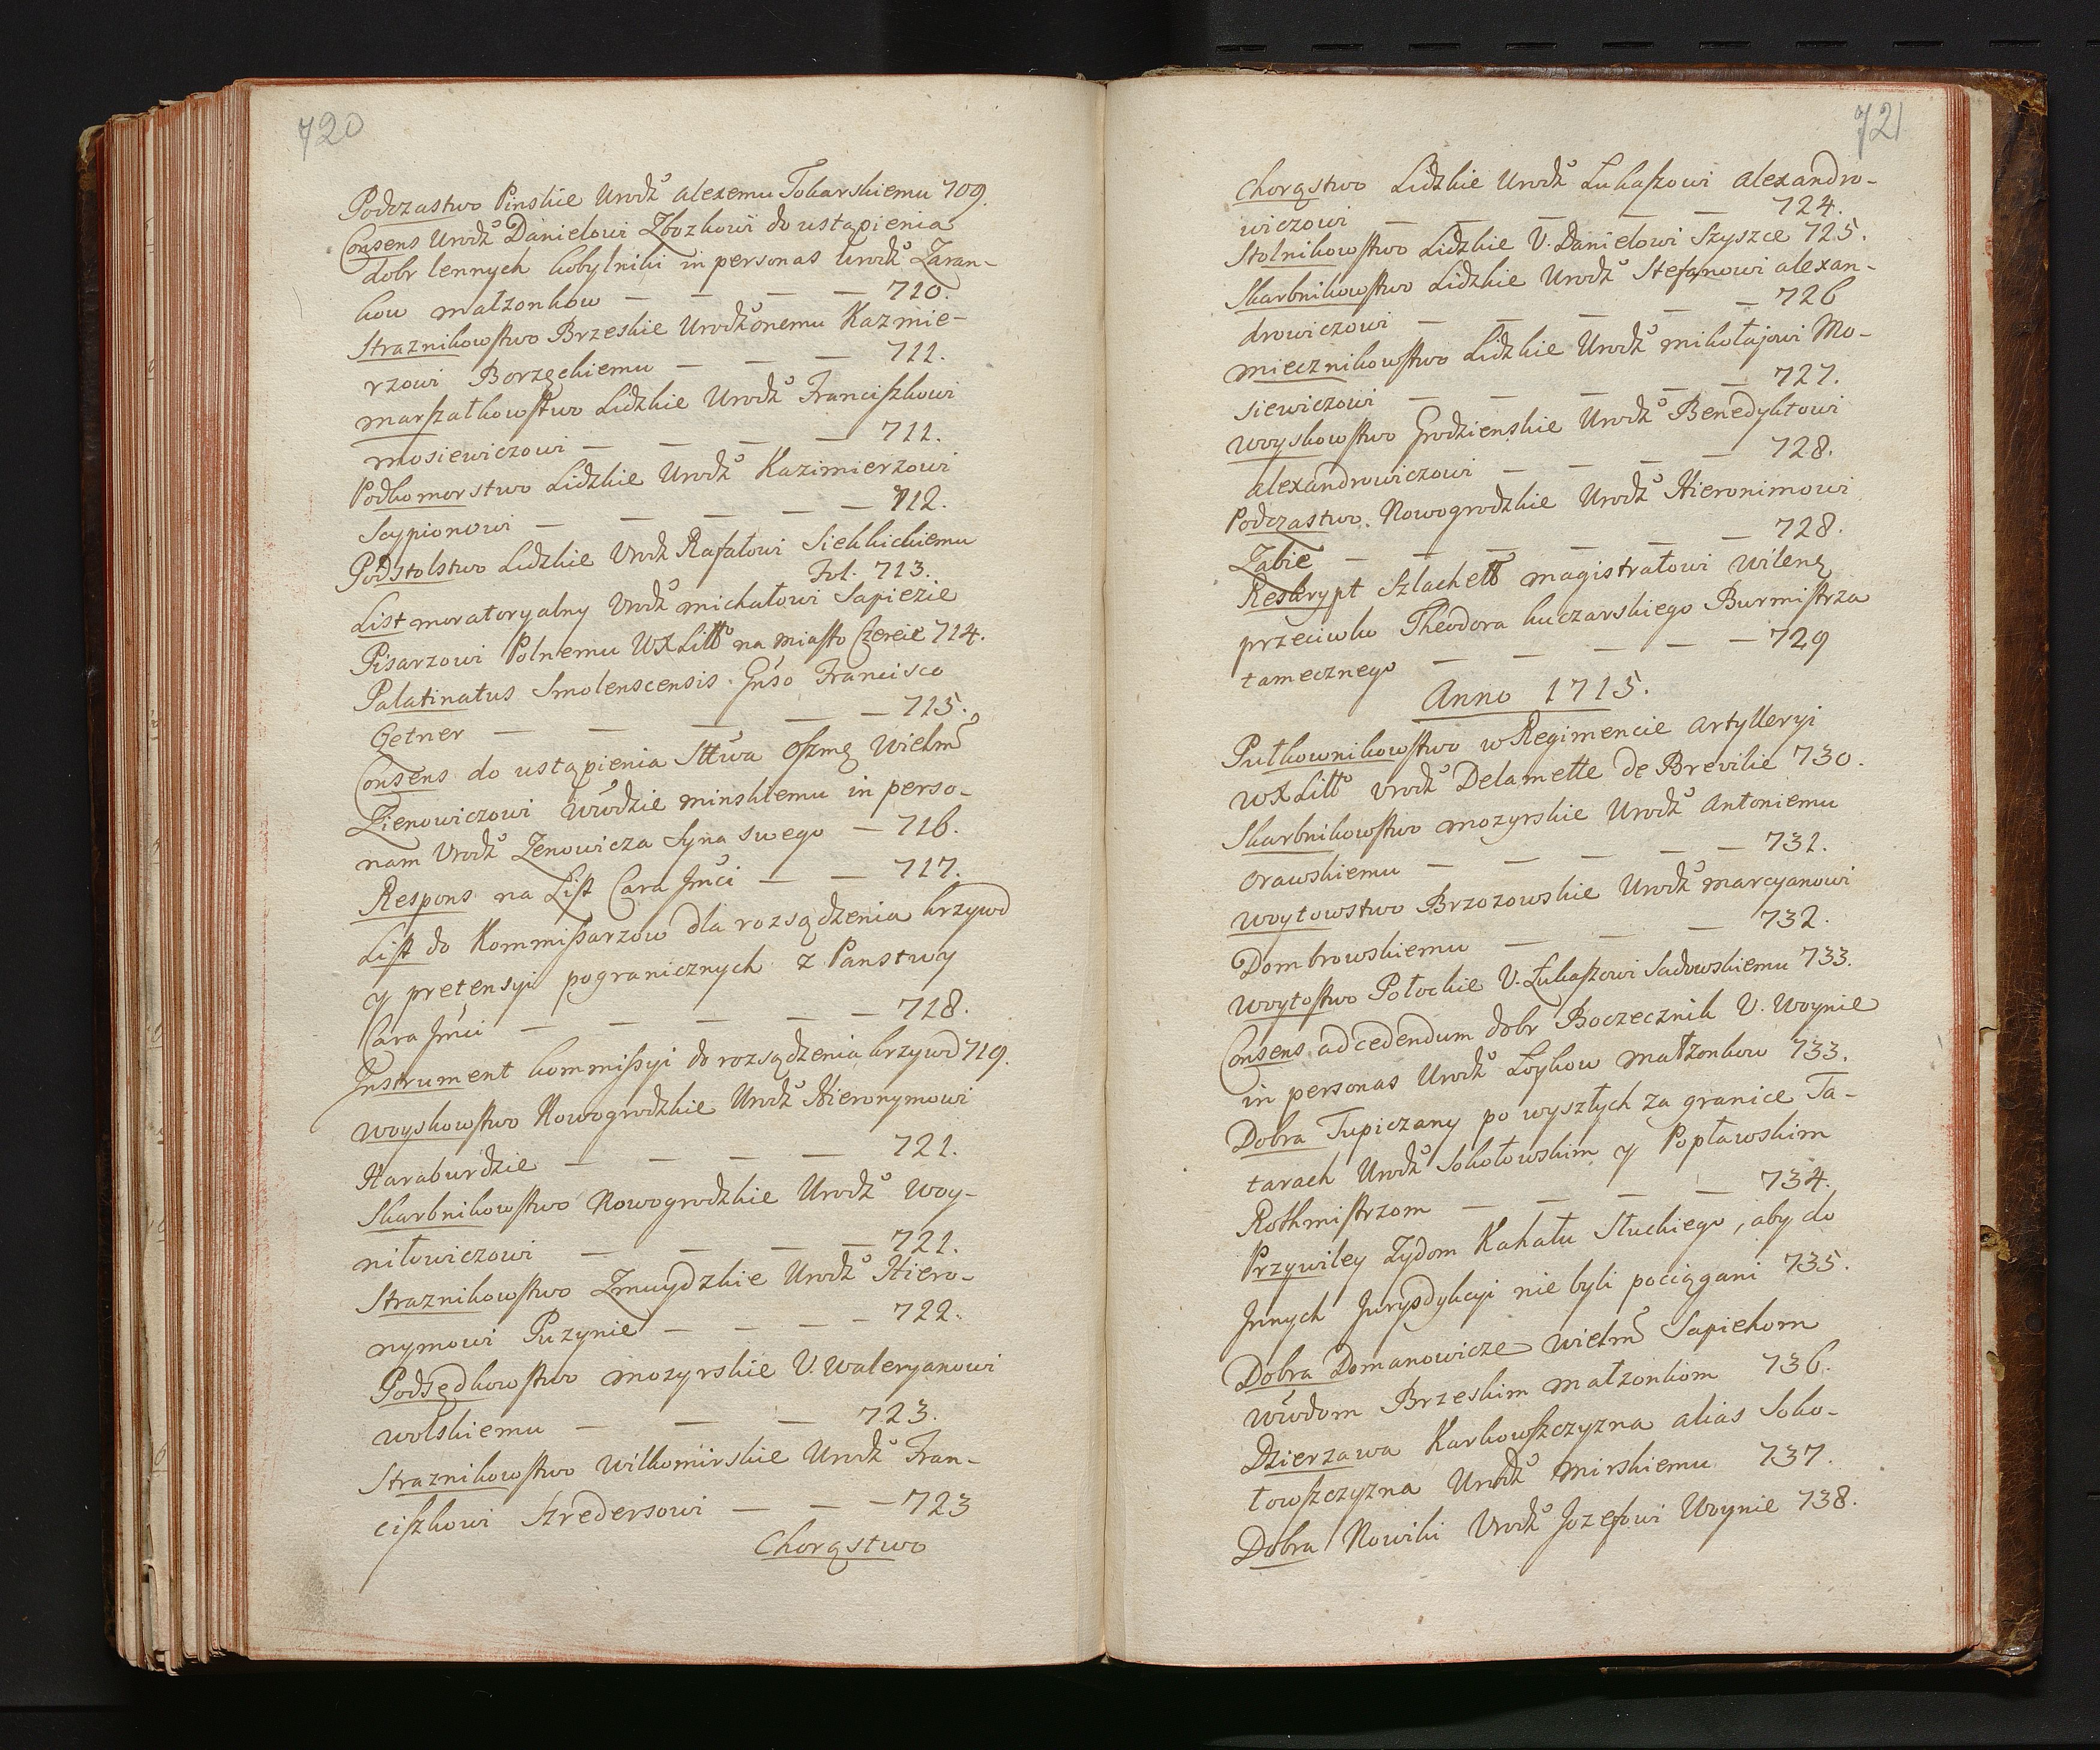 720
Podczastwo Pinskie Urodz° Alexemu Tokarskiemu 709.
Consens Urodz° Danielowi Zbozkowi do ustąpienia
dobr lennych Kobylniki in personas Urodz° Zaran-
kow małzonkow — — — — 710.
Straznikowstwo Brzeskie Urodz°onemu Kazmie-
rzowi Borzęckiemu — — — 711.
Marszałkowstwo Lidzkie Urodz° Franciszkowi
Mosiewiczowi — — — — 711.
Podkomorstwo Lidzkie Urodz° Kazimierzowi
Scypionowi — — — — — 712.
Podstolstwo Lidzkie Urodz Rafałowi Siehkickiemu
Fol. 713.
List moratoryalny Urodz° Michałowi Sapiezie
Pisarzowi Polnemu WXLitto na miasto Czereie 714.
Palatinatus Smolenscensis Gnso Francisco
Getner — — — — — 715.
Consens do ustąpienia Sttwa Oszmę Wielm°
Zienowiczowi Wwodzie Minskiemu in perso-
nam Urodz° Zenowicza Syna swego — 716.
Respons na List Cara Jmci — — 717.
List do Kommissarzow dla rozsądzenia krzywd
y pretensyi pogranicznych z Panstwy
Cara Jmci — — — — — 718.
Jnstrument kommissyi do rozsądzenia krzywd 719.
Woyskowstwo Nowogrodzkie Urodz° Hieronymowi
Haraburdzie — — — — 721.
Skarbnikowstwo Nowogrodzkie Urodz° Woy-
niłowiczowi — — — — 721.
Straznikowstwo Zmuydzkie Urodz° Hiero-
nymowi Puzynie — — — — 722.
Podsędkowstwo Mozyrskie U. Waleryanowi
Wolskiemu — — — 723.
Straznikowstwo Wilkomirskie Urodz° Fran-
ciszkowi Szredersowi — — — 723
Chorąstwo
721
Chorąstwo Lidzkie Urodz° Lukaszowi Alexandro-
wiczowi — — — — — 724.
Stolnikowstwo Lidzkie U. Danielowi Szyszce 725.
Skarbnikowstwo Lidzkie Urodz° Stefanowi Alexan-
drowiczowi — — — — — 726
Miecznikowstwo Lidzkie Urodz° Mikołajowi Mo-
siewiczowi — — — — — 727.
Woyskowstwo Grodzienskie Urodz° Benedyktowi
Alexandrowiczowi — — — — 728.
Podczastwo Nowogrodzkie Urodz° Hieronimowi
Zabie — — — — — — 728.
Reskrypt Szlachett Magistratowi Wilenę
przeciwko Theodora Kuczarskiego Burmistrza
tamecznego — — — — — 729
Anno 1715.
Pułkownikowstwo w Regimencie Artylleryi
WXLitto Urodz° Delamette de Brevilie 730.
Skarbnikowstwo Mozyrskie Urodz° Antoniemu
Orawskiemu — — — — — 731.
Woytowstwo Brzozowskie Urodz° Marcyanowi
Dombrowskiemu — — — 732.
Woytostwo Połockie U. Łukaszowi Sadowskiemu 733.
Consens ad cedendum dobr Boczecznik U. Woynie
in personas Urodz° Loykow Małzonkow 733.
Dobra Tupiczany po wyszłych za granice Ta-
tarach Urodz° Sokołowskim y Popławskim
Rothmistrzom — — — — 734.
Przywiley Zydom Kahału Słuckiego, aby do
Jnnych Jurysdykcyi nie byli pociągani 735.
Dobra Domanowicze Wielm° Sapiehom
Wwodom Brzeskim Małzonkom 736.
Dzierzawa Karkowszczyzna alias Soko-
łowszczyzna Urodz° Mirskiemu 737.
Dobra Nowiki Urodz° Jozefowi Woynie 738.